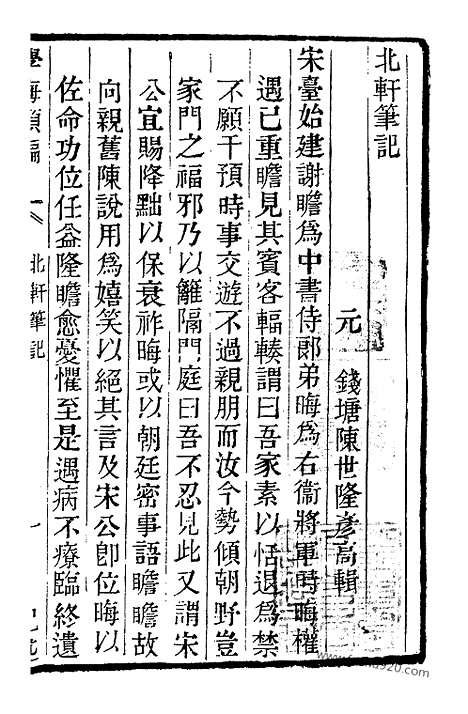 北軒筆記
元 錢塘陳世隆彥高輯
宋臺始建謝瞻爲中書侍郞弟晦爲右衞將軍時晦權
遇已重瞻見其賓客輻輳謂曰吾家素以恬退爲禁
不願干預時事交遊不過親朋而汝今勢傾朝野豈
家門之福邪乃以籬隔門庭曰吾不忍見此又謂宋
公宜賜降黜以保衰祚晦或以朝廷密事語瞻瞻故
向親舊陳說用爲嬉笑以絕其言及宋公卽位晦以
佐命功位任益隆瞻愈憂懼至是遇病不療臨終遺
學海類編 北軒筆記 一